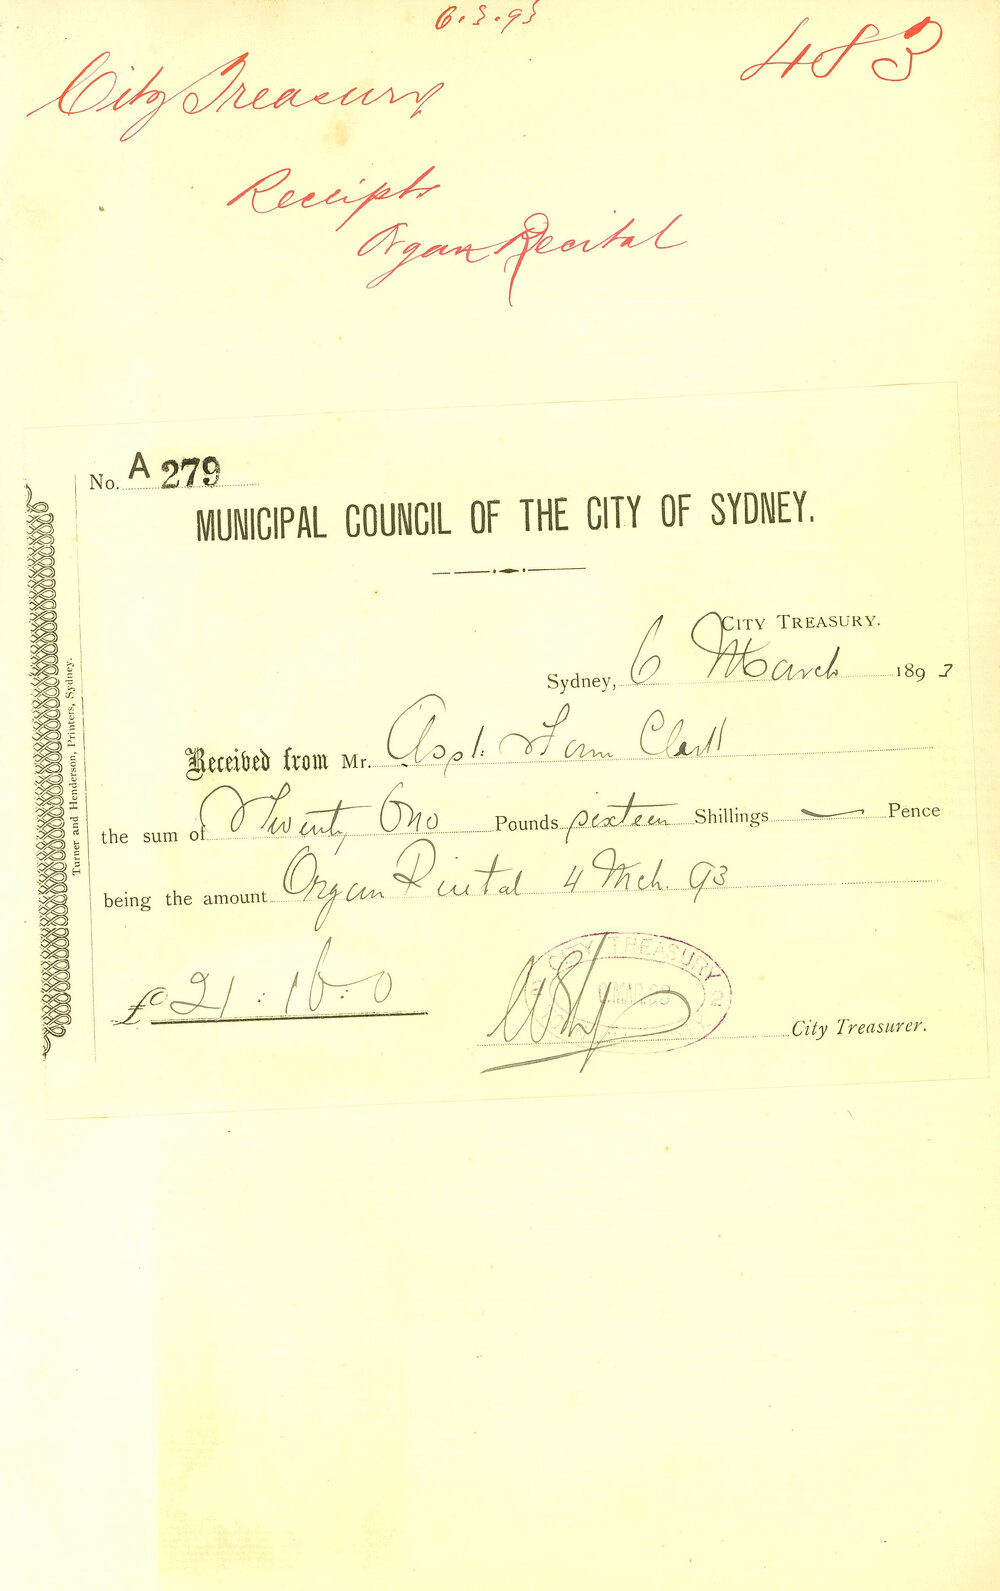 6.3.93
483
City Treasury
Receipts
Organ Recital
No. A 279
MUNICIPAL COUNCIL OF THE CITY OF SYDNEY.
CITY TREASURY.
Sydney, 6 March 1893
Received from Mr. Asst. Town Clerk
the sum of Twenty One Pounds sixteen Shillings — Pence
being the amount Organ Recital 4 Mch. 93
£ 21 : 16 : 0
CITY TREASURY
2 6 MAR. 93 2
City Treasurer.
Turner and Henderson, Printers, Sydney.